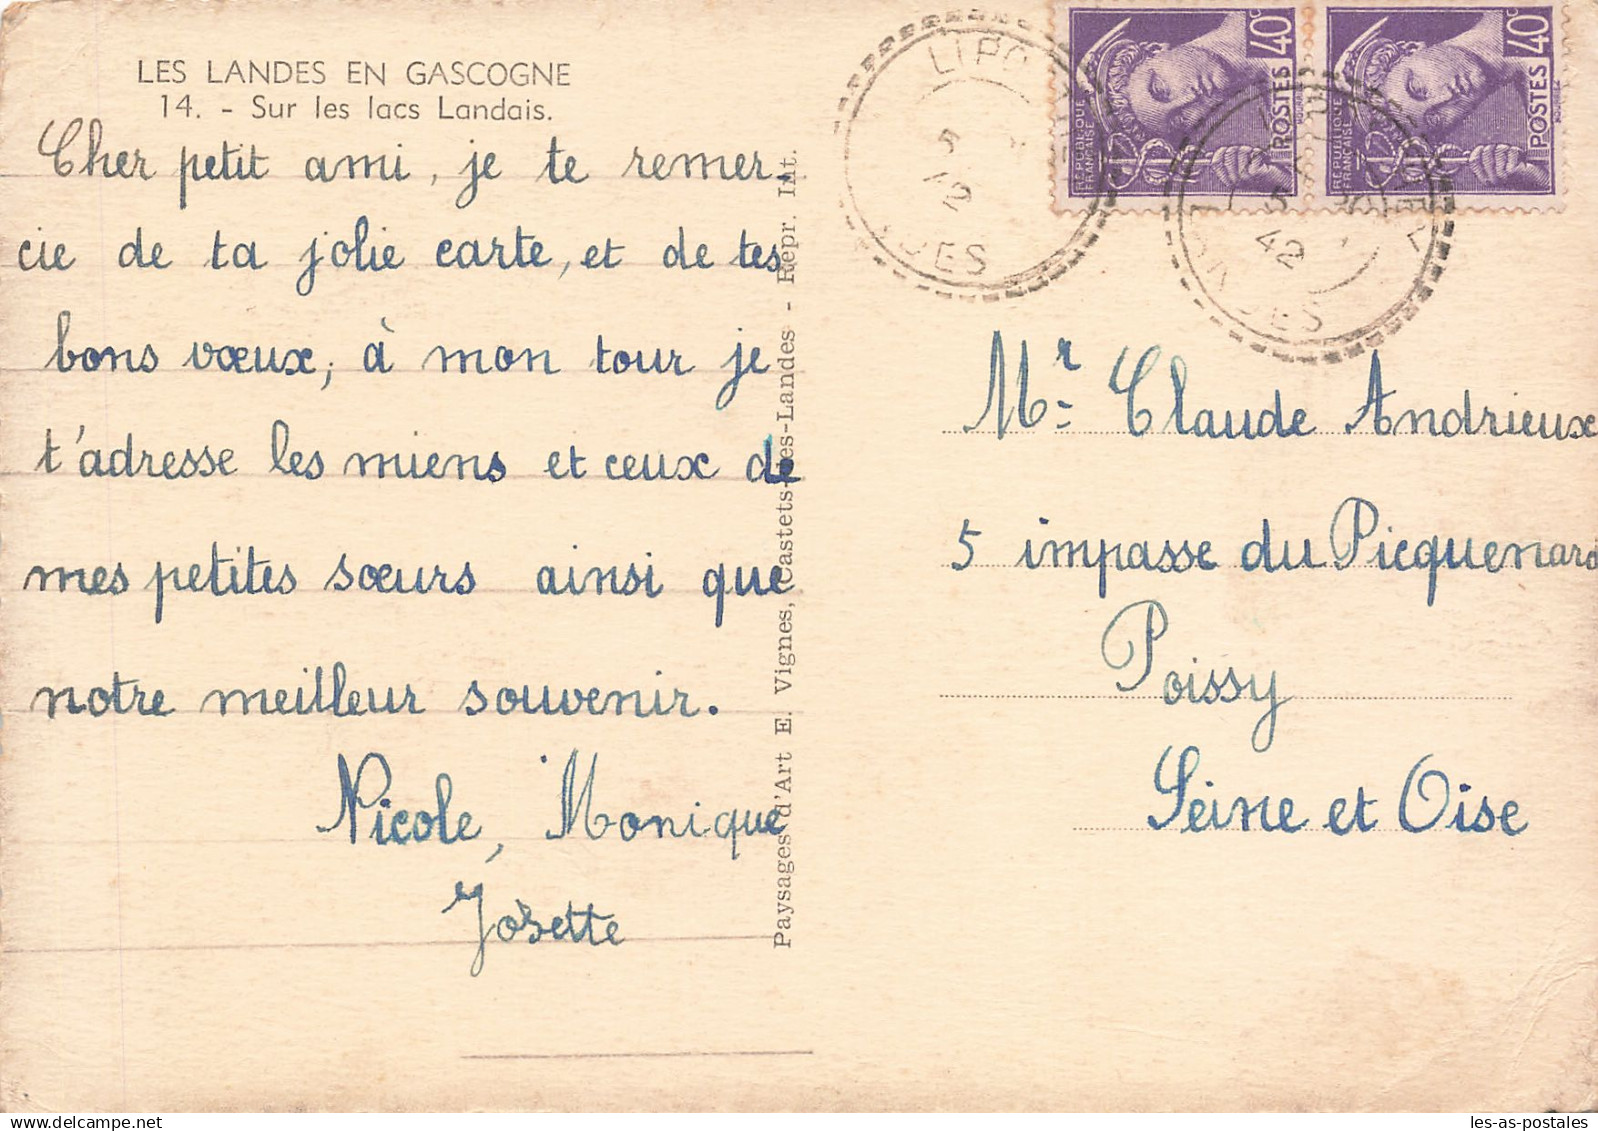 LES LANDES EN GASCOGNE
14. - Sur les lacs Landais.
Cher petit ami, je te remer-
cie de ta jolie carte, et de tes
bons vœux, à mon tour je
t'adresse les miens et ceux de
mes petites sœurs ainsi que
notre meilleur souvenir.
Nicole, Monique
Josette
Paysages d'Art E. Vignes, Castets-des-Landes - Repr. Int.
40c
POSTES
REPUBLIQUE
FRANÇAISE
40c
POSTES
REPUBLIQUE
FRANÇAISE
42
Mr Claude Andrieux
5 impasse du Picquenard
Poissy
Seine et Oise
les-as-postales